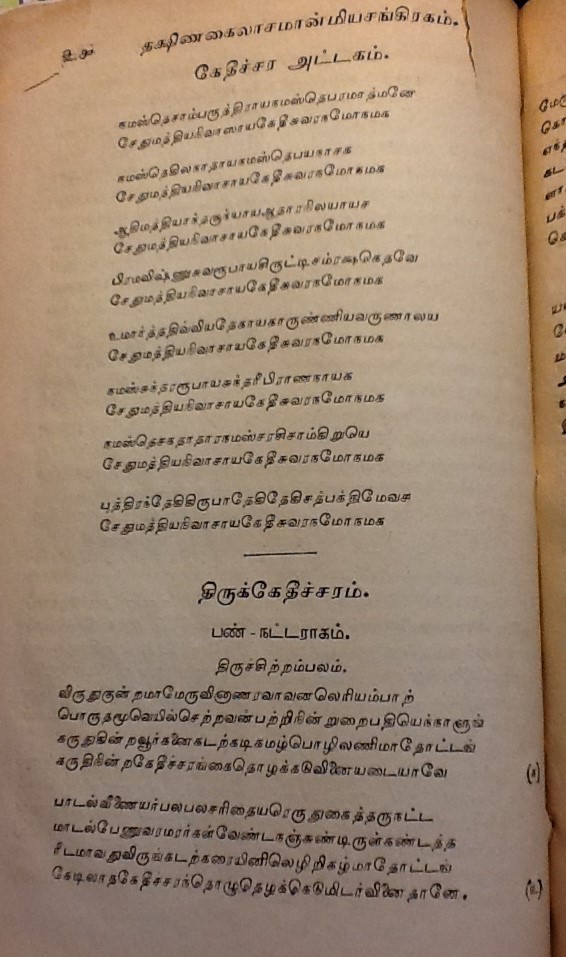 உசு தக்ஷிணகைலாசமான்மியசங்கிரகம்.
கேதீச்சர அட்டகம்.
நமஸ்தெசாம்பருத்திராயநமஸ்தெபரமாத்மனே
சேதுமத்தியநிவாஸாயகேதீசுவரநமோநமக
நமஸ்தெகிலநாதாயநமஸ்தெபயநாசக
சேதுமத்தியநிவாசாயகேதீசுவரநமோநமக
ஆதிமத்தியாந்தசூந்யாயஆதாரநிலயாயச
சேதுமத்தியநிவாசாயகேதீசுவரநமோநமக
பிரமவிஷ்ணுசுவரூபாயசிருட்டிசம்ரக்ஷகெதவே
சேதுமத்தியநிவாசாயகேதீசுவரநமோநமக
உமார்த்ததிவ்வியதேகாயகாருண்ணியவருணாலய
சேதுமத்தியநிவாசாயகேதீசுவரநமோநமக
நமஸ்சுந்தரரூபாயசுந்தரீபிராணநாயக
சேதுமத்தியநிவாசாயகேதீசுவரநமோநமக
நமஸ்தெசகதாதாரநமஸ்சரசிசாம்கிறுயெ
சேதுமத்தியநிவாசாயகேதீசுவரநமோநமக
புத்திரந்தேகிகிருபாதேகிதேகிசத்பக்திமேவச
சேதுமத்தியநிவாசாயகேதீசுவரநமோநமக
திருக்கேதீச்சரம்.
பண் - நட்டராகம்.
திருச்சிற்றம்பலம்.
விருதுகுன்றமாமேருவினாணரவாவனலெரியம்பாற்
பொருதமூவெயில்செற்றவன்பற்றிநின்றுறைபதியெந்நாளுங்
கருதுகின்றவூர்கனைகடற்கடிகமழ்பொழிலணிமாதோட்டங்
கருதிநின்றகேதீச்சரங்கைதொழக்கடுவினையடையாவே (க)
பாடல்வீணையர்பலபலசரிதையரெருதுகைத்தருநட்ட
மாடல்பேணுவரமரர்கள்வேண்டநஞ்சுண்டிருள்கண்டத்த
ரீடமாவதுவிருங்கடற்கரையினிலெழிறிகழ்மாதோட்டங்
கேடிலாதகேதீச்சரந்தொழுதெழக்கெடுமிடர்வினைதானே. (உ)